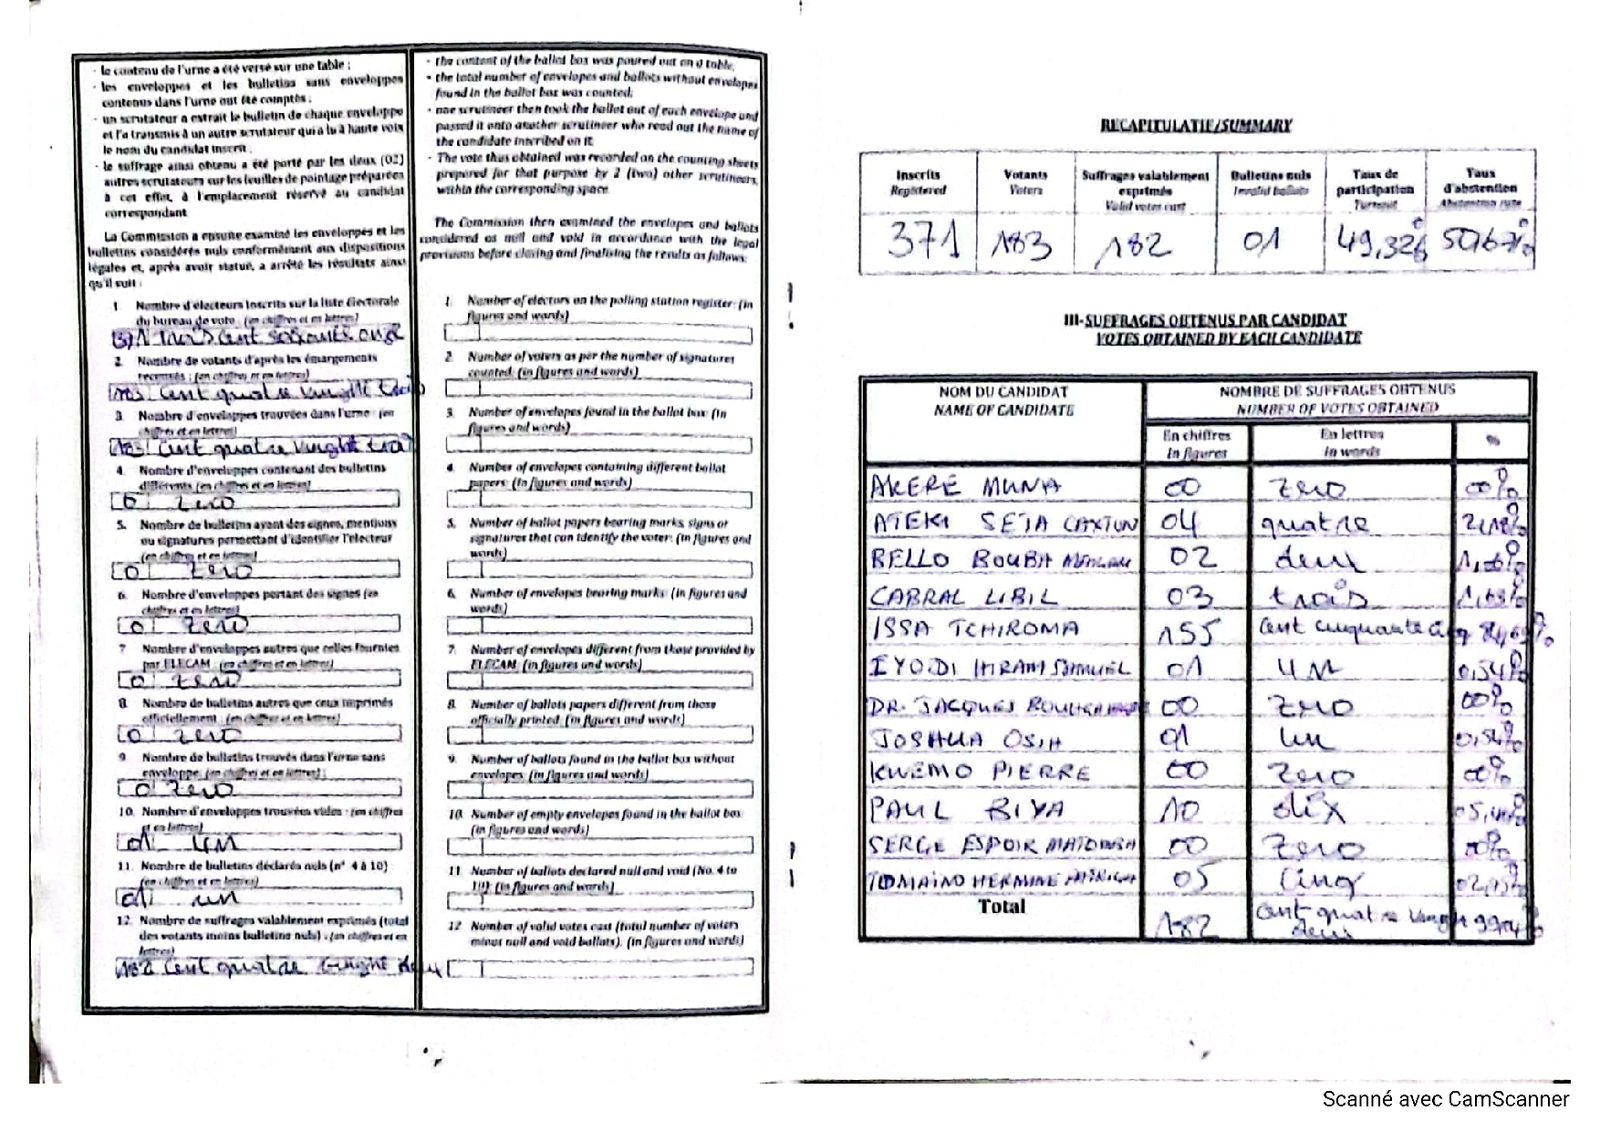 - le contenu de l'urne a été versé sur une table ;
- les enveloppes et les bulletins sans enveloppes
contenus dans l'urne ont été comptés ;
- un scrutateur a extrait le bulletin de chaque enveloppe
et l'a transmis à un autre scrutateur qui a lu à haute voix
le nom du candidat inscrit ;
- le suffrage ainsi obtenu a été porté par les deux (02)
autres scrutateurs sur les feuilles de pointage préparées
à cet effet, à l'emplacement réservé au candidat
correspondant
La Commission a ensuite examiné les enveloppes et les
bulletins considérés nuls conformément aux dispositions
légales et, après avoir statué, a arrêté les résultats ainsi
qu'il suit :
1. Nombre d'électeurs inscrits sur la liste électorale
du bureau de vote : (en chiffres et en lettres)
371 trois cent soixante onze
2. Nombre de votants d'après les émargements
recensés : (en chiffres et en lettres)
183 Cent quatre vinght trois
3. Nombre d'enveloppes trouvées dans l'urne : (en
chiffres et en lettres)
183 Cent quatre vinght trois
4. Nombre d'enveloppes contenant des bulletins
différents (en chiffres et en lettres)
0 zero
5. Nombre de bulletins ayant des signes, mentions
ou signatures permettant d'identifier l'électeur
(en chiffres et en lettres)
0 zero
6. Nombre d'enveloppes portant des signes (en
chiffres et en lettres)
0 zero
7 Nombre d'enveloppes autres que celles fournies
par ELECAM : (en chiffres et en lettres)
0 zero
8. Nombre de bulletins autres que ceux imprimés
officiellement : (en chiffres et en lettres)
0 zero
9 Nombre de bulletins trouvés dans l'urne sans
enveloppe (en chiffres et en lettres) :
0 zero
10. Nombre d'enveloppes trouvées vides : (en chiffres
et en lettres)
01 un
11. Nombre de bulletins déclarés nuls (n° 4 à 10)
(en chiffres et en lettres)
01 un
12. Nombre de suffrages valablement exprimés (total
des votants moins bulletins nuls) : (en chiffres et en
lettres)
182 Cent quatre vinght deux
- the content of the ballot box was poured out on a table,
- the total number of envelopes and ballots without envelopes
found in the ballot box was counted;
- one scrutineer then took the ballot out of each envelope and
passed it onto another scrutineer who read out the name of
the candidate inscribed on it;
- The vote thus obtained was recorded on the counting sheets
prepared for that purpose by 2 (two) other scrutineers,
within the corresponding space.
The Commission then examined the envelopes and ballots
considered as null and void in accordance with the legal
provisions before closing and finalising the results as follows:
1. Number of electors on the polling station register: (in
figures and words)
2. Number of voters as per the number of signatures
counted: (in figures and words)
3. Number of envelopes found in the ballot box: (in
figures and words)
4. Number of envelopes containing different ballot
papers: (in figures and words)
5. Number of ballot papers bearing marks, signs or
signatures that can identify the voter: (in figures and
words)
6. Number of envelopes bearing marks: (in figures and
words)
7. Number of envelopes different from those provided by
ELECAM: (in figures and words)
8. Number of ballots papers different from those
officially printed: (in figures and words)
9. Number of ballots found in the ballot box without
envelopes: (in figures and words)
10. Number of empty envelopes found in the ballot box
(in figures and words)
11 Number of ballots declared null and void (No. 4 to
10): (in figures and words)
12 Number of valid votes cast (total number of voters
minus null and void ballots). (in figures and words)
RECAPITULATIF/SUMMARY
Inscrits Registered Votants Voters Suffrages valablement exprimés Valid votes cast Bulletins nuls Invalid ballots Taux de participation Turnout Taux d'abstention Abstention rate
371 183 182 01 49,32% 50,67%
III-SUFFRAGES OBTENUS PAR CANDIDAT
VOTES OBTAINED BY EACH CANDIDATE
NOM DU CANDIDAT NOMBRE DE SUFFRAGES OBTENUS
NAME OF CANDIDATE NUMBER OF VOTES OBTAINED
En chiffres En lettres %
In figures In words
AKERE MUNA 00 zero 00%
ATEKI SETA CAXTON 04 quatre 2,18%
BELLO BOUBA 02 deux
CABRAL LIBIL 03 trois
ISSA TCHIROMA 155 Cent cinquante cinq
IYODI HIRAM SAMUEL 01 un 0,54%
DR. JACQUES 00 zero 00%
JOSHUA OSIH 01 un 0,54%
KWEMO PIERRE 00 zero 00%
PAUL BIYA 10 dix
SERGE ESPOIR MATOMBA 00 zero 00%
TOMAINO HERMINE 05 Cinq
Total 182 Cent quatre vinght deux
Scanné avec CamScanner